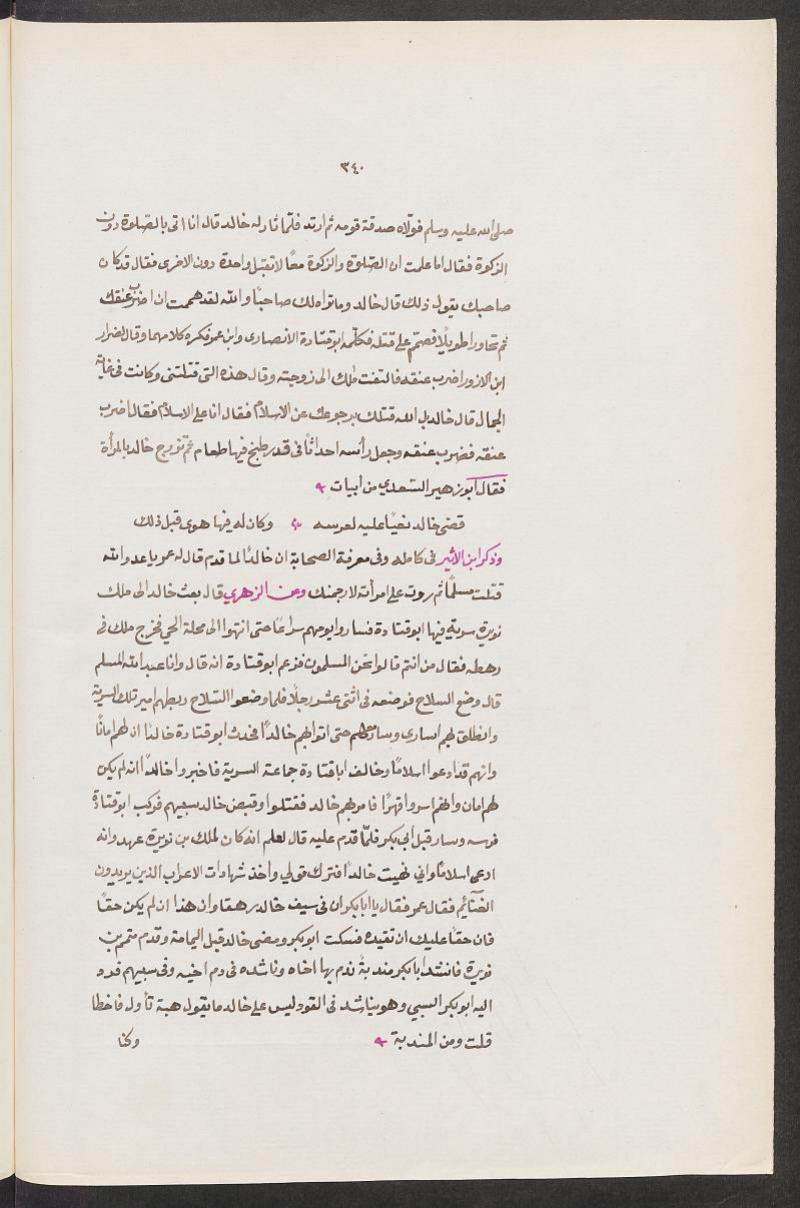 ٣٤٠
صلى الله عليه وسلم فولاه صدقة قومه ثم ارتد فلمّا نازله خالد قال انا اتى بالصّلوة دون
الزكوة فقال اما علمت ان الصّلوة والزكوة معًا لا تقبل واحدة دون الاخرى فقال قد كان
صاحبك يقول ذلك قال خالد وما تراه لك صاحبًا والله لقد هممت ان اضرب عنقك
ثم تحاورا طويلًا فصمّم على قتله فكلّمه ابو قتادة الانصارى وابن عمر فكره كلامهما وقال لضرار
ابن الازور اضرب عنقه فالتفت ملك الى زوجته وقال هذه التى قتلتنى وكانت فى غاية
الجمال قال خالد بل الله قتلك برجوعك عن الاسلام فقال انا على الاسلام فقال اضرب
عنقه فضرب عنقه وجعل رأسه احد اثافى قدر طبخ فيها طعام ثم تزوج خالد بالمرأة
فقال ابو زهير السّعدي من ابيات
قضى خالد بغيًا عليه لعرسه وكان له فيها هوى قبل ذلك
وذكر ابن الأثير فى كامله وفى معرفة الصحابة ان خالدًا لما قدم قال له عمر يا عدو الله
قتلت مسلمًا ثم نزوت على امرأته لارجمنك وعن الزهري قال بعث خالد الى ملك
نويرة سرية فيها ابو قتادة فساروا يومهم سراعًا حتى انتهوا الى محلة الحي فخرج ملك فى
رهطه فقال من انتم قالوا نحن المسلمون فزعم ابو قتادة انه قال وانا عبد الله المسلم
قال وضع السلاح فوضعه فى اثنى عشر رجلًا فلما وضعوا السّلاح ربطهم امير تلك السرية
وانطلق بهم اسارى وسار معهم حتى اتوا بهم خالدًا فحدث ابو قتادة خالدًا ان لهم امانًا
وانهم قد ادعوا اسلامًا وخالف ابا قتادة جماعة السرية فاخبروا خالدًا انه لم يكن
لهم امان وانهم اسروا قهرًا فامر بهم خالد فقتلوا وقبض خالد سبيهم فركب ابو قتادة
فرسه وسار قبل ابى بكر فلمّا قدم عليه قال تعلم انه كان لملك بن نويرة عهد وانه
ادعى اسلامًا واني نهيت خالدًا فترك قولي واخذ شهادات الاعراب الذين يريدون
الغنآئم فقال عمر فقال يا ابا بكر ان فى سيف خالد رهقا وان هذا ان لم يكن حقًا
فان حقًا عليك ان تقيده فسكت ابو بكر ومضى خالد قبل اليمامة وقدم متمم بن
نويرة فانشد ابا بكر مندبة ندم بها اخاه وناشده فى دم اخيه وفى سبيهم فرد
اليه ابو بكر السبي وهو يناشد فى القود ليس على خالد ما يقول هبه تأول فاخطا
قلت ومن المندبة وكنا